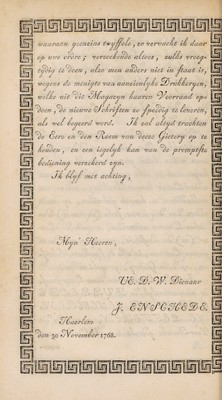 waaraan geenzins twyffele, zo verwacht ik daar
op uwe ordre; verzoekende alleen, zulks vroeg-
tydig te doen, alzo men anders niet in staat is,
wegens de menigte van aanzienlyke Drukkeryen,
welke uit die Magazyn haaren Voorraad op-
doen, de nieuwe Schriften zo spoedig te leveren,
als wel begeerd werd. Ik zal altyd trachten
de Eere en den Roem van deeze Gietery op te
houden, en een iegelyk kan van de promptste
bediening verzekerd zyn.
Ik blyf met achting,
Myn Heeren,
UE. D. W. Dienaar
J. ENSCHEDE.
Haarlem
den 30 November 1768.